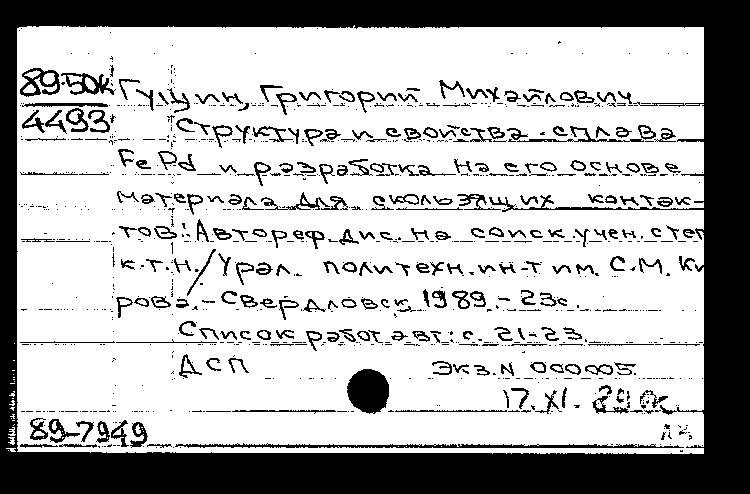 89-50к Гущин, Григорий Михайлович
4493 Структура и свойства сплава
FePd и разработка на его основе
материала для скользящих контак-
тов: Автореф. дис. на соиск. учен. степ
к.т.н. / Урал. политехн. ин-т им. С.М. Ки
рова. - Свердловск, 1989. - 23с.
Список работ авт.: с. 21-23.
ДСП Экз. N 000005.
17. XI. 89
89-7949